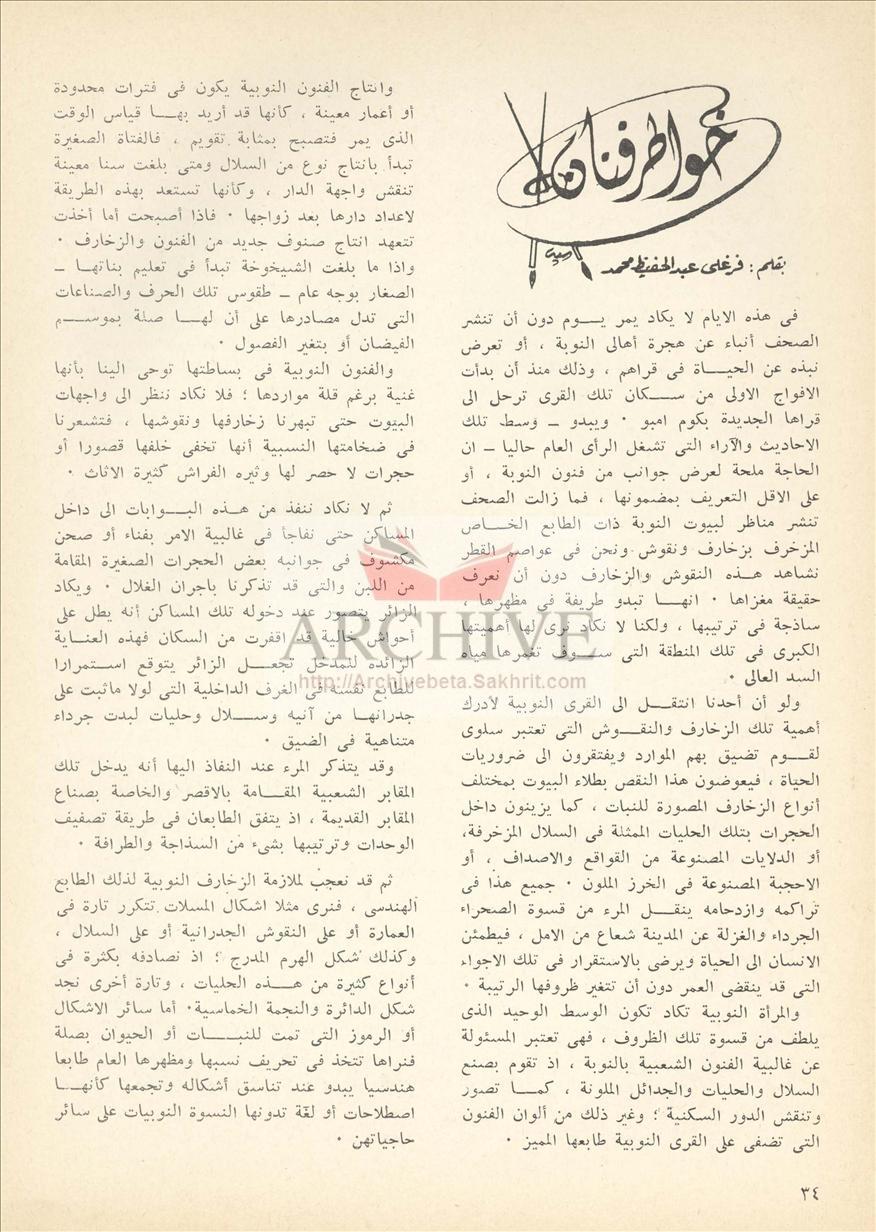 خواطر فنان
بقلم : فرغلى عبد الحفيظ محمد
فى هذه الايام لا يكاد يمر يـــوم دون أن تنشر
الصحف أنباء عن هجرة أهالى النوبة ، أو تعرض
نبذه عن الحيــاة فى قراهم ، وذلك منذ أن بدأت
الافواج الاولى من ســكان تلك القرى ترحل الى
قراها الجديدة بكوم امبو ٠ ويبدو ــ وسط تلك
الاحاديث والآراء التى تشغل الرأى العام حاليا ــ ان
الحاجة ملحة لعرض جوانب من فنون النوبة ، أو
على الاقل التعريف بمضمونها ، فما زالت الصحف
تنشر مناظر لبيوت النوبة ذات الطابع الخــاص
المزخرف بزخارف ونقوش ونحن فى عواصم القطر
نشاهد هــذه النقوش والزخارف دون أن نعرف
حقيقة مغزاها ٠ انهــا تبدو طريفة فى مظهرها ،
ساذجة فى ترتيبها ، ولكنا لا نكاد نرى لها أهميتها
الكبرى فى تلك المنطقة التى ســوف تغمرها مياه
السد العالى ٠
ولو أن أحدنا انتقــل الى القرى النوبية لأدرك
أهمية تلك الزخارف والنقــوش التى تعتبر سلوى
لقــوم تضيق بهم الموارد ويفتقرون الى ضروريات
الحياة ، فيعوضون هذا النقص بطلاء البيوت بمختلف
أنواع الزخارف المصورة للنبات ، كما يزينون داخل
الحجرات بتلك الحليات الممثلة فى السلال المزخرفة،
أو الدلايات المصنوعة من القواقع والاصداف ، أو
الاحجبة المصنوعة فى الخرز الملون ٠ جميع هذا فى
تراكمه وازدحامه ينقــل المرء من قسوة الصحراء
الجرداء والغزلة عن المدينة شعاع من الامل ، فيطمئن
الانسان الى الحياة ويرضى بالاستقرار فى تلك الاجواء
التى قد ينقضى العمر دون أن تتغير ظروفها الرتيبة ٠
والمرأة النوبية تكاد تكون الوسط الوحيد الذى
يلطف من قسوة تلك الظروف ، فهى تعتبر المسئولة
عن غالبية الفنون الشعبية بالنوبة ، اذ تقوم بصنع
السلال والحليات والجدائل الملونة ، كمــا تصور
وتنقش الدور السكنية ؛ وغير ذلك من ألوان الفنون
التى تضفى على القرى النوبية طابعها المميز ٠
وانتاج الفنون النوبية يكون فى فترات محدودة
أو أعمار معينة ، كأنها قد أريد بهــا قياس الوقت
الذى يمر فتصبح بمثابة تقويم ، فالفتاة الصغيرة
تبدأ بانتاج نوع من السلال ومتى بلغت سنا معينة
تنقش واجهة الدار ، وكأنها تستعد بهذه الطريقة
لاعداد دارها بعد زواجها ٠ فاذا أصبحت أما أخذت
تتعهد انتاج صنوف جديد من الفنون والزخارف ٠
واذا ما بلغت الشيخوخة تبدأ فى تعليم بناتهــا ــ
الصغار بوجه عام ــ طقوس تلك الحرف والصناعات
التى تدل مصادرها على أن لهــا صلة بموســم
الفيضان أو بتغير الفصول ٠
والفنون النوبية فى بساطتها توحى الينا بأنها
غنية برغم قلة مواردها ؛ فلا نكاد ننظر الى واجهات
البيوت حتى تبهرنا زخارفها ونقوشها ، فتشعرنا
فى ضخامتها النسبية أنها تخفى خلفها قصورا أو
حجرات لا حصر لها وثيره الفراش كثيرة الاثاث ٠
ثم لا نكاد ننفذ من هــذه البــوابات الى داخل
المساكن حتى نفاجأ فى غالبية الامر بفناء أو صحن
مكشوف فى جوانبه بعض الحجرات الصغيرة المقامة
من اللبن والتى قد تذكرنا باجران الغلال ٠ ويكاد
الزائر يتصور عند دخوله تلك المساكن أنه يطل على
أحواش خالية قد اقفرت من السكان فهذه العنــاية
الزائده للمدخل تجعــل الزائر يتوقع اســتمرارا
للطابع نفسه فى الغرف الداخلية التى لولا ماثبت على
جدرانهــا من آنيه وســلال وحليات لبدت جرداء
متناهية فى الضيق ٠
وقد يتذكر المرء عند النفاذ اليها أنه يدخل تلك
المقابر الشعبية المقــامة بالاقصر والخاصة بصناع
المقابر القديمة ، اذ يتفق الطابعان فى طريقة تصفيف
الوحدات وترتيبها بشىء من السذاجة والطرافة ٠
ثم قد نعجب لملازمة الزخارف النوبية لذلك الطابع
الهندسى ، فنرى مثلا اشكال المسلات تتكرر تارة فى
العمارة أو على النقوش الجدرانية أو على السلال ،
وكذلك شكل الهرم المدرج ؛ اذ نصادفه بكثرة فى
أنواع كثيرة من هــذه الحليات ، وتارة أخرى نجد
شكل الدائرة والنجمة الخماسية٠ أما سائر الاشكال
أو الرموز التى تمت للنبــات أو الحيوان بصلة
فنراها تتخذ فى تحريف نسبها ومظهرها العام طابعا
هندسيا يبدو عند تناسق أشكاله وتجمعها كأنهــا
اصطلاحات أو لغة تدونها النسوة النوبيات على سائر
حاجياتهن ٠
٣٤
ARCHIVE
http://Archivebeta.Sakhrit.com